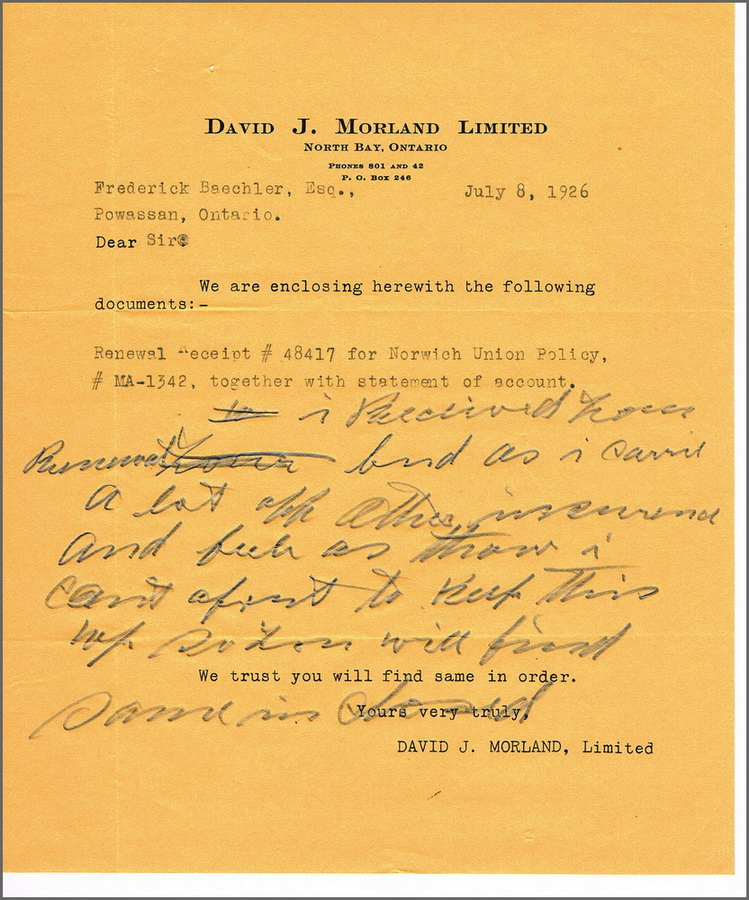 DAVID J. MORLAND LIMITED
NORTH BAY, ONTARIO
PHONES 801 AND 42
P. O. BOX 246
Frederick Baechler, Esq., July 8, 1926
Powassan, Ontario.
Dear Sir
We are enclosing herewith the following
documents:-
Renewal Receipt # 48417 for Norwich Union Policy,
# MA-1342, together with statement of account.
i Received
Renewal and as i carrie
a lot off other insurence
and feel as thow i
cant afort to keep this
up so you will find
We trust you will find same in order.
same in closed
Yours very truly,
DAVID J. MORLAND, Limited